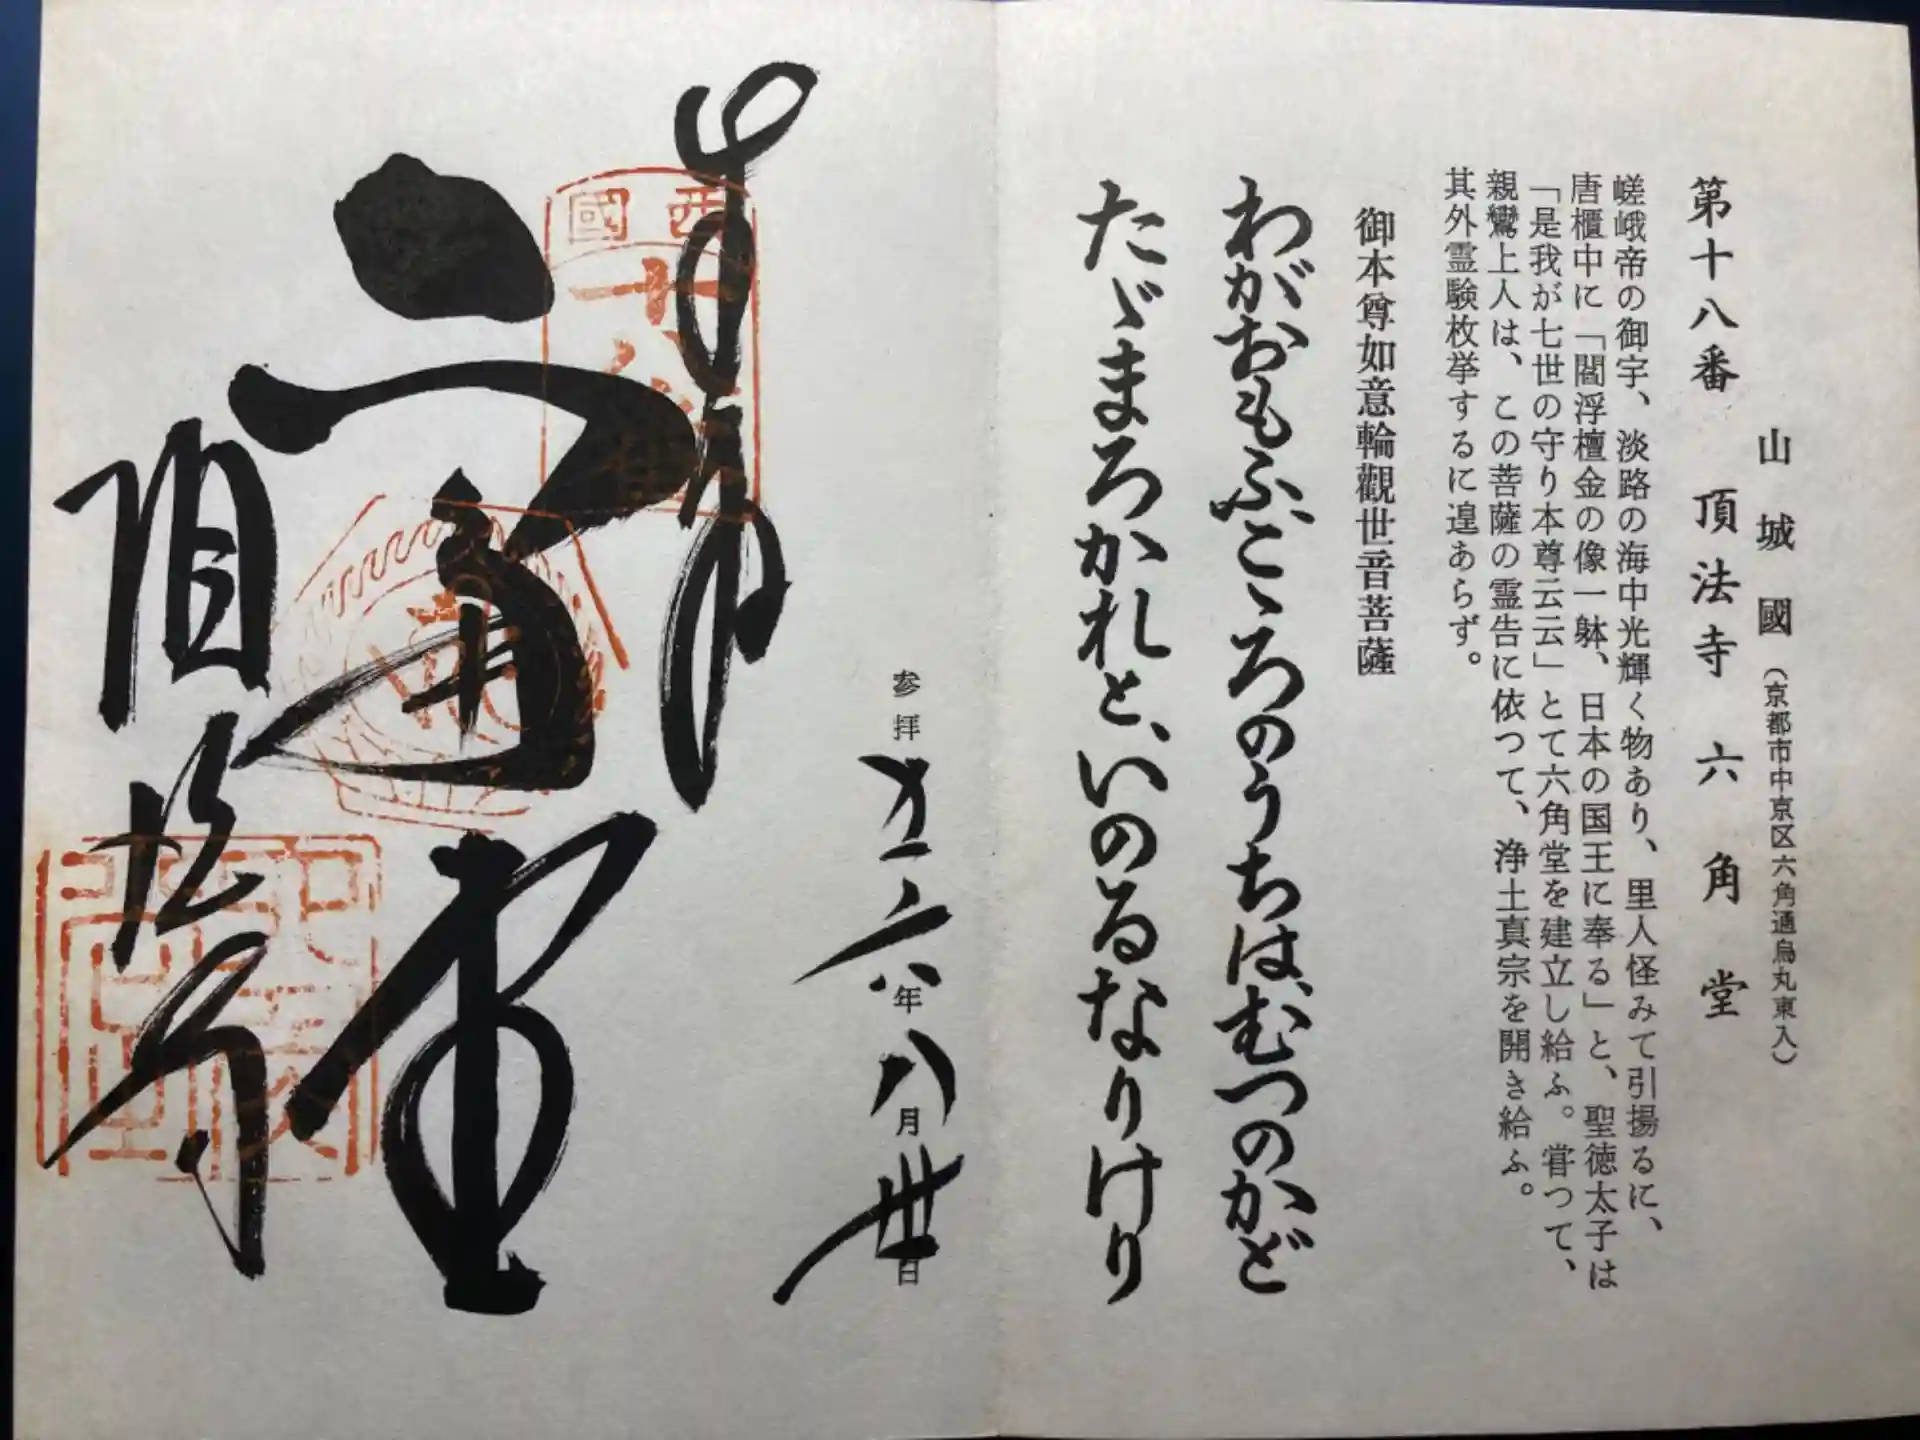 山城國(京都市中京区六角通烏丸東入)
第十八番 頂法寺六角堂
嵯峨帝の御宇、淡路の海中光輝く物あり、里人怪みて引揚るに、
唐櫃中に「閻浮檀金の像一躰、日本の国王に奉る」と、聖徳太子は
「是我が七世の守り本尊云云」とて六角堂を建立し給ふ。嘗つて、
親鸞上人は、この菩薩の霊告に依つて、浄土真宗を開き給ふ。
其外霊験枚挙するに遑あらず。
御本尊如意輪觀世音菩薩
わがおもふこゝろのうちは、むつのかど
たゞまろかれと、いのるなりけり
参拝 年八月丗日
奉拝
西國十八番
六角堂
頂法寺